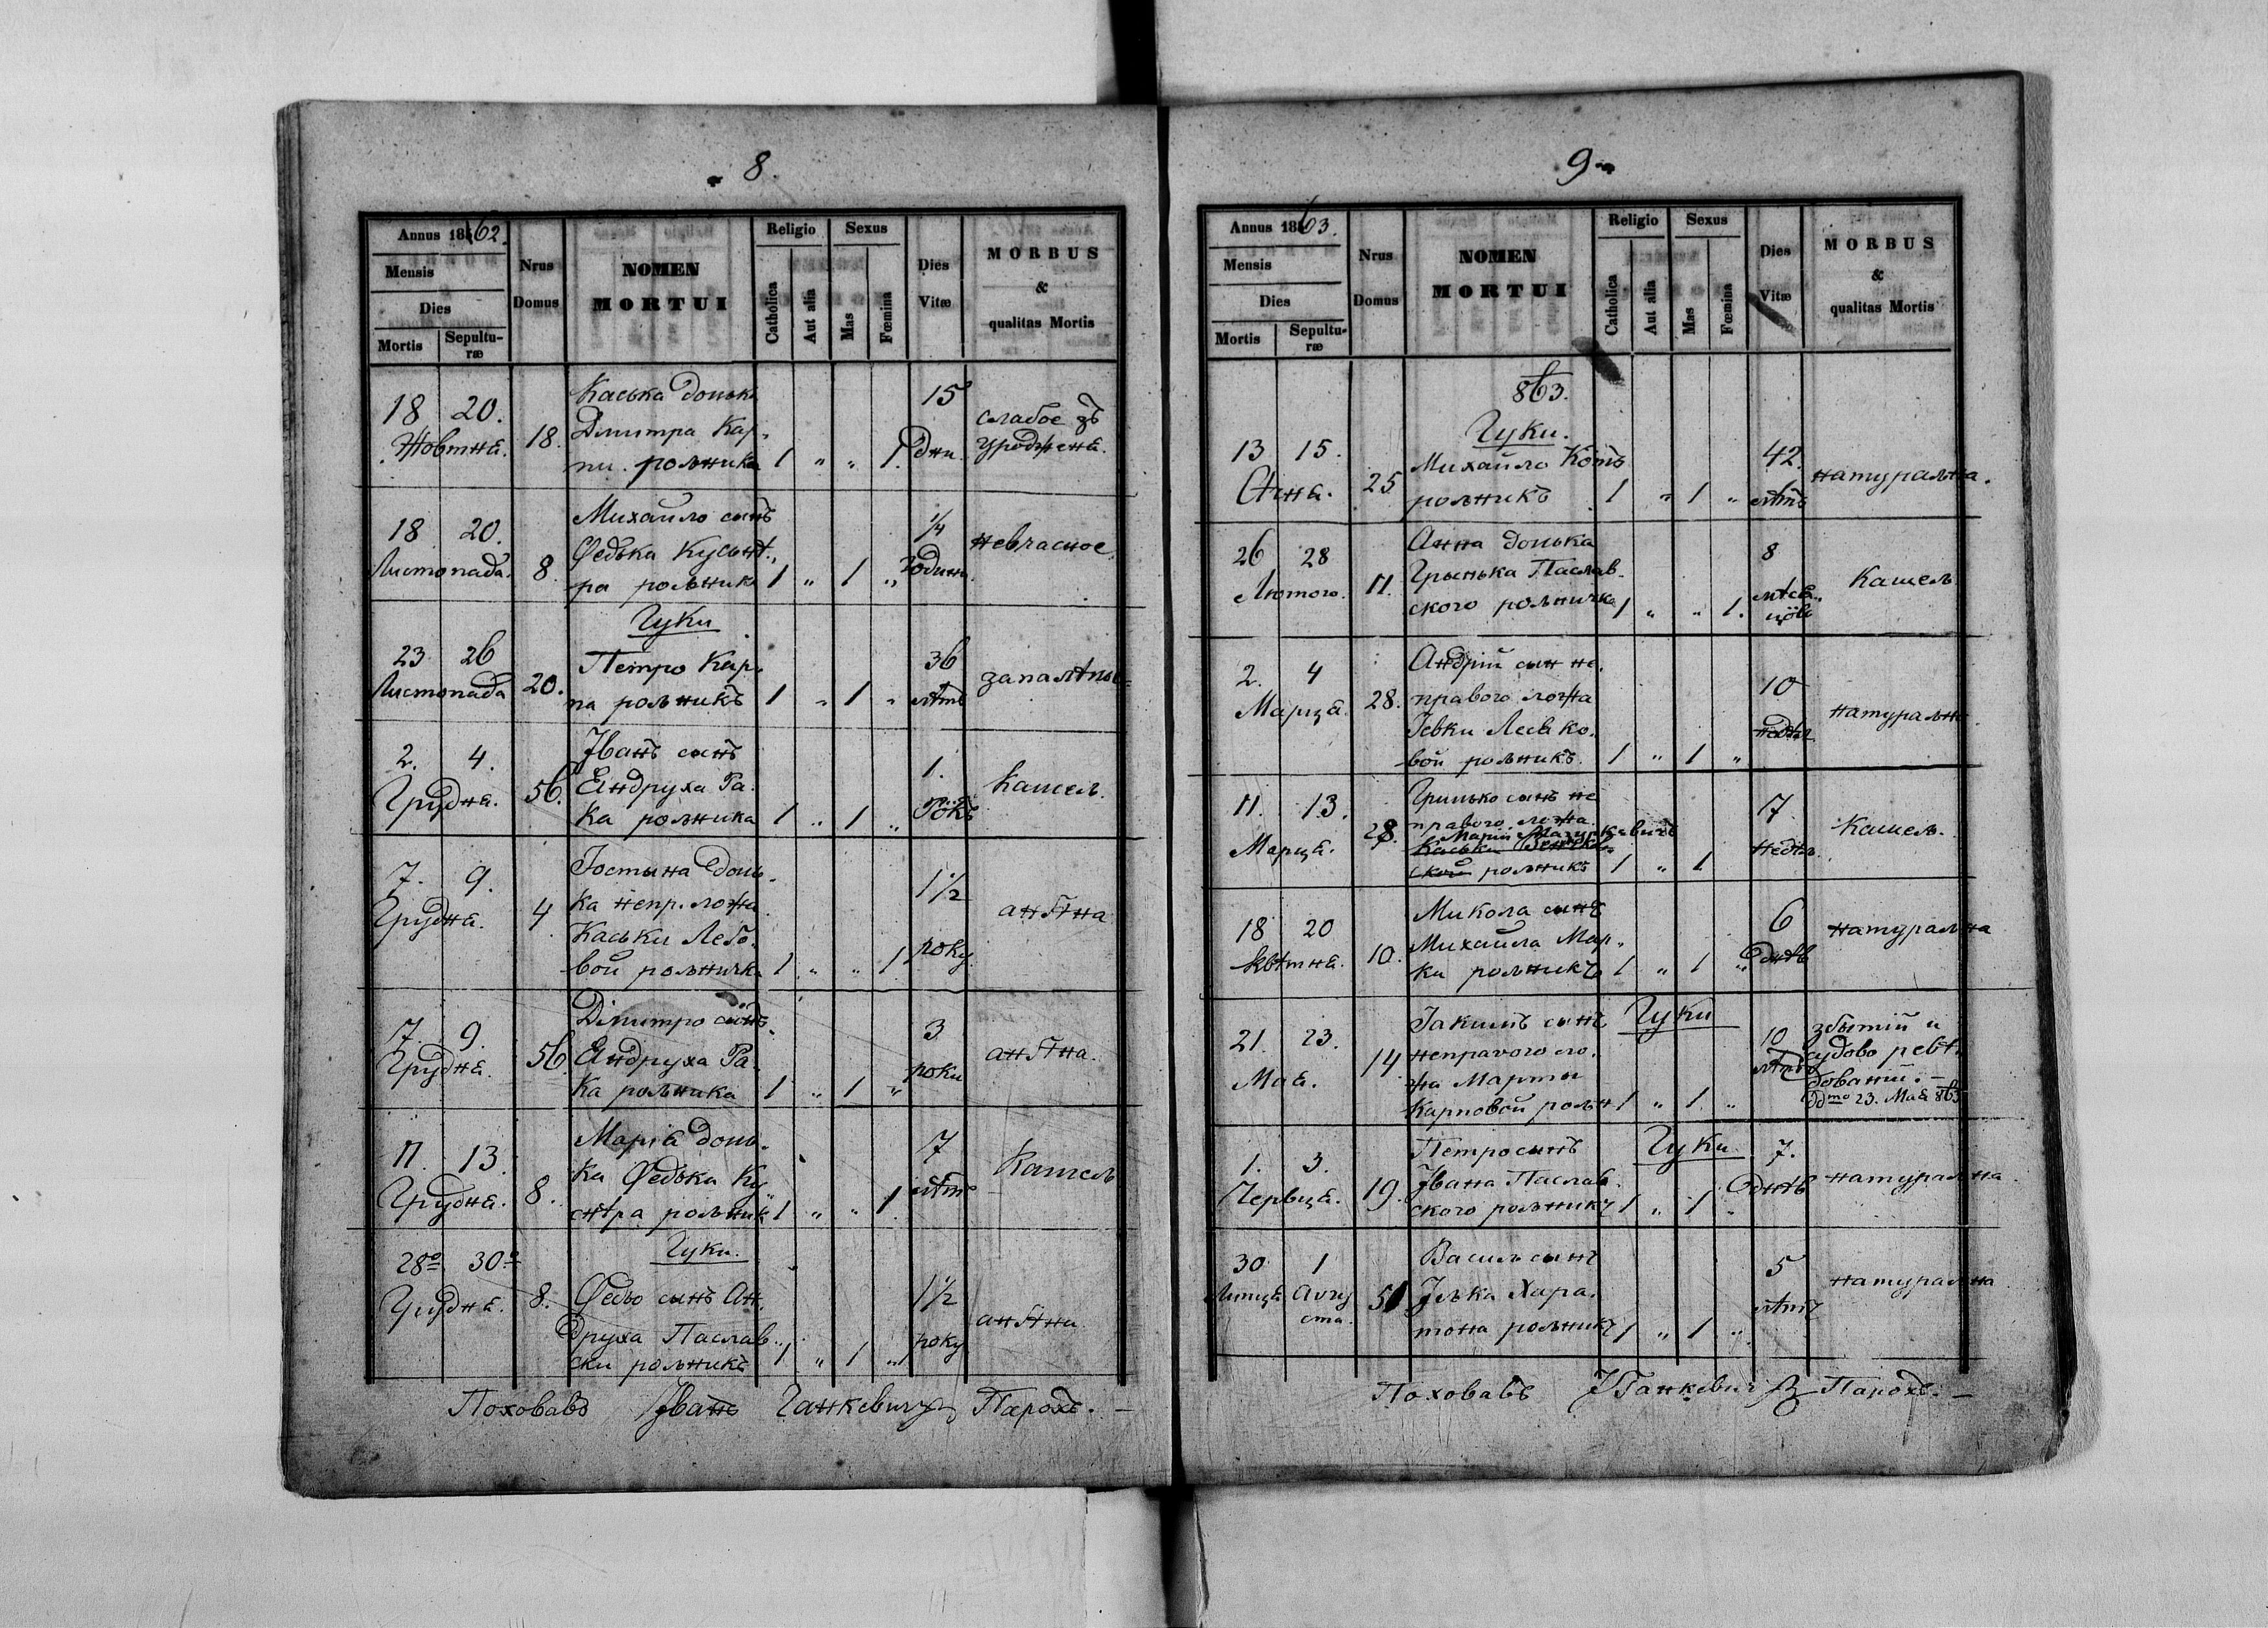 8.
Annus 1862.
Mensis
Dies
Mortis
Sepulturæ
Nrus Domus
NOMEN MORTUI
Religio
Catholica
Aut alia
Sexus
Mas
Fœmina
Dies Vitæ
MORBUS & qualitas Mortis
18 20.
Жовтня. 18.
Каська донька
Дмитра Кар-
пи. рольника 1 " " 1.
15 дни.
слабое зъ
уродженя.
18 20.
Листопада. 8.
Михайло сынъ
Федька Кусьнѣ-
ра рольник 1 " 1 "
1/4 годины.
невчасное.
Гуки
23 26
Листопада 20.
Петро Кар-
па рольникъ 1 " 1 "
36 лѣтъ
запалѣньє
2. 4.
Грудня. 56.
Іванъ сынъ
Яндруха Ра-
ка рольника 1 " 1 "
1. рôкъ
кашель.
7. 9.
Грудня. 4.
Юстына донь-
ка непр. ложа
Каськи Лебо-
вой рольничка 1 " " 1
1 1/2 року
ангѣна
7. 9.
Грудня. 56.
Дмитро сынъ
Яндруха Ра-
ка рольника 1 " 1 "
3 роки
ангѣна.
11. 13.
Грудня. 8.
Марія донь-
ка Федька Ку-
снѣра рольник 1 " " 1
7 лѣтъ
кашель
Гуки.
28го 30го
Грудня. 8.
Федьо сынъ Ан-
друха Паслав-
ски рольникъ 1 " 1 "
1 1/2 року
ангѣна
Поховавъ Іванъ Ганкевичъ Парохъ.
9
Annus 1863.
Mensis
Dies
Mortis
Sepulturæ
Nrus Domus
NOMEN MORTUI
Religio
Catholica
Aut alia
Sexus
Mas
Fœmina
Dies Vitæ
MORBUS & qualitas Mortis
863.
Гуки.
13 15.
Січня. 25
Михайло Котъ
рольникъ 1 " 1 "
42. лѣтъ
натуральна.
26 28
Лютого. 11.
Анна донька
Грынька Паслав-
ского рольничка 1 " " 1.
8 мѣся-
цôвъ
Кашель
2. 4
Марця. 28.
Андрій сын не-
правого ложа
Евки Лесько-
вой рольникъ. 1 " 1 "
10 недѣл.
натурально.
11. 13.
Марця. 28.
Гринько сынъ не
правого ложа
Маріи Мазуркевичъ
рольникъ 1 " 1
7 недѣль.
Кашель.
18 20
Квѣтня. 10.
Микола сынъ
Михайла Мар-
ки рольникъ 1 " 1 "
6 днѣвъ
натуральна
Гуки
21. 23.
Мая. 14
Іакимъ сынъ
неправого ло-
жа Марты
Карповой рольн 1 " 1 "
10 лѣтъ
збытій и
судово ревѣ-
дованій. –
ддто 23. Мая 863
Гуки
1. 3.
Червця. 19.
Петро сынъ
Івана Паслав-
ского рольникъ 1 " 1 "
7. днѣвъ
натуральна
30 1
Липця Авгу
ста. 51
Василь сынъ
Ілька Хара-
тона рольникъ 1 " 1 "
5 лѣтъ
натуральна
Поховавъ І Ганкевичъ Парохъ. –